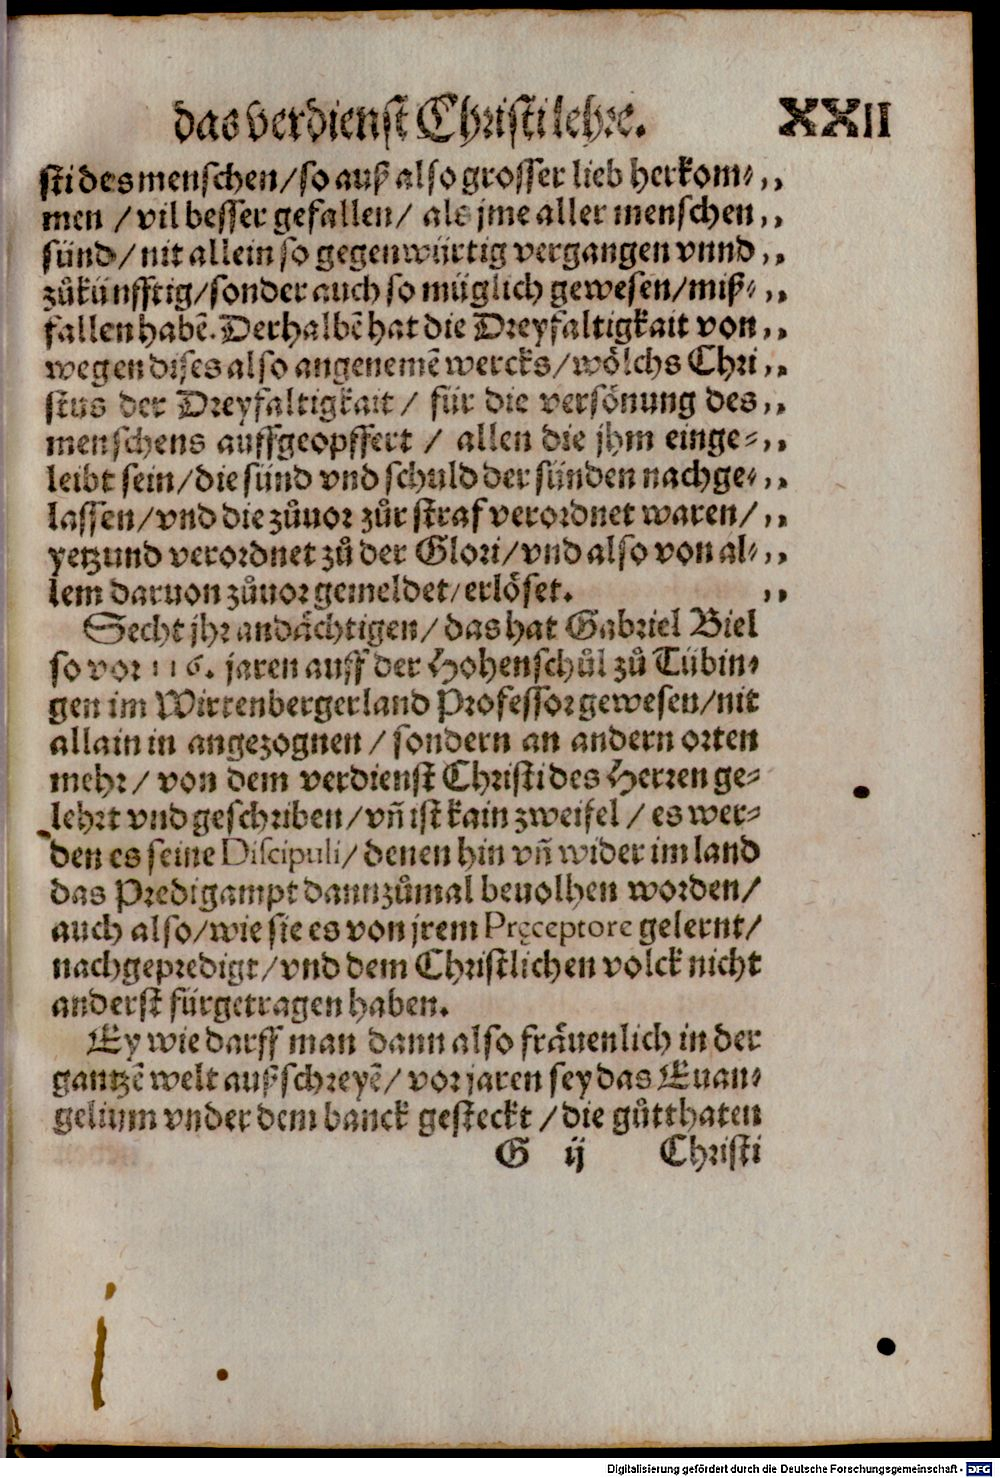 das verdienst Christi lehre. XXII
sti des menschen/so auß also grosser lieb herkom⸗ ,,
men / vil besser gefallen/ als jme aller menschen ,,
sünd/ nit allein so gegenwürtig vergangen vnnd ,,
zůkünfftig/sonder auch so müglich gewesen/miß⸗ ,,
fallen habẽ. Derhalbẽ hat die Dreyfaltigkait von ,,
wegen dises also angenemẽ wercks/wölchs Chri ,,
stus der Dreyfaltigkait / für die versönung des ,,
menschens auffgeopffert / allen die jhm einge⸗ ,,
leibt sein/die sünd vnd schuld der sünden nachge⸗ ,,
lassen/vnd die zůuor zůr straf verordnet waren/ ,,
yetzund verordnet zů der Glori/vnd also von al⸗ ,,
lem daruon zůuor gemeldet/erlöset. ,,
Secht jhr andächtigen/das hat Gabriel Biel
so vor 116. jaren auff der Hohenschůl zů Tübin⸗
gen im Wirtenbergerland Professor gewesen/nit
allain in angezognen / sondern an andern orten
mehr/ von dem verdienst Christi des Herren ge⸗
lehrt vnd geschriben/vñ ist kain zweifel / es wer⸗
den es seine Discipuli/ denen hin vñ wider im land
das Predigampt dannzůmal beuolhen worden/
auch also/wie sie es von jrem Pręceptore gelernt/
nachgepredigt/vnd dem Christlichen volck nicht
anderst fürgetragen haben.
Ey wie darff man dann also fräuenlich in der
gantzẽ welt außschreyẽ/ vor jaren sey das Euan⸗
gelium vnder dem banck gesteckt /die gůtthaten
G ij Christi
Digitalisierung gefördert durch die Deutsche Forschungsgemeinschaft - DFG